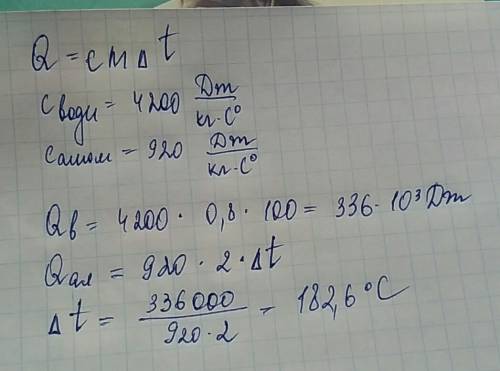 Q = cmΔt
cводи = 4200 Дж/кг·C°
cалюм = 920 Дж/кг·C°
Qв = 4200 · 0,8 · 100 = 336 · 10³ Дж
Qал = 920 · 2 · Δt
Δt = 336000/920·2 = 182,6°C